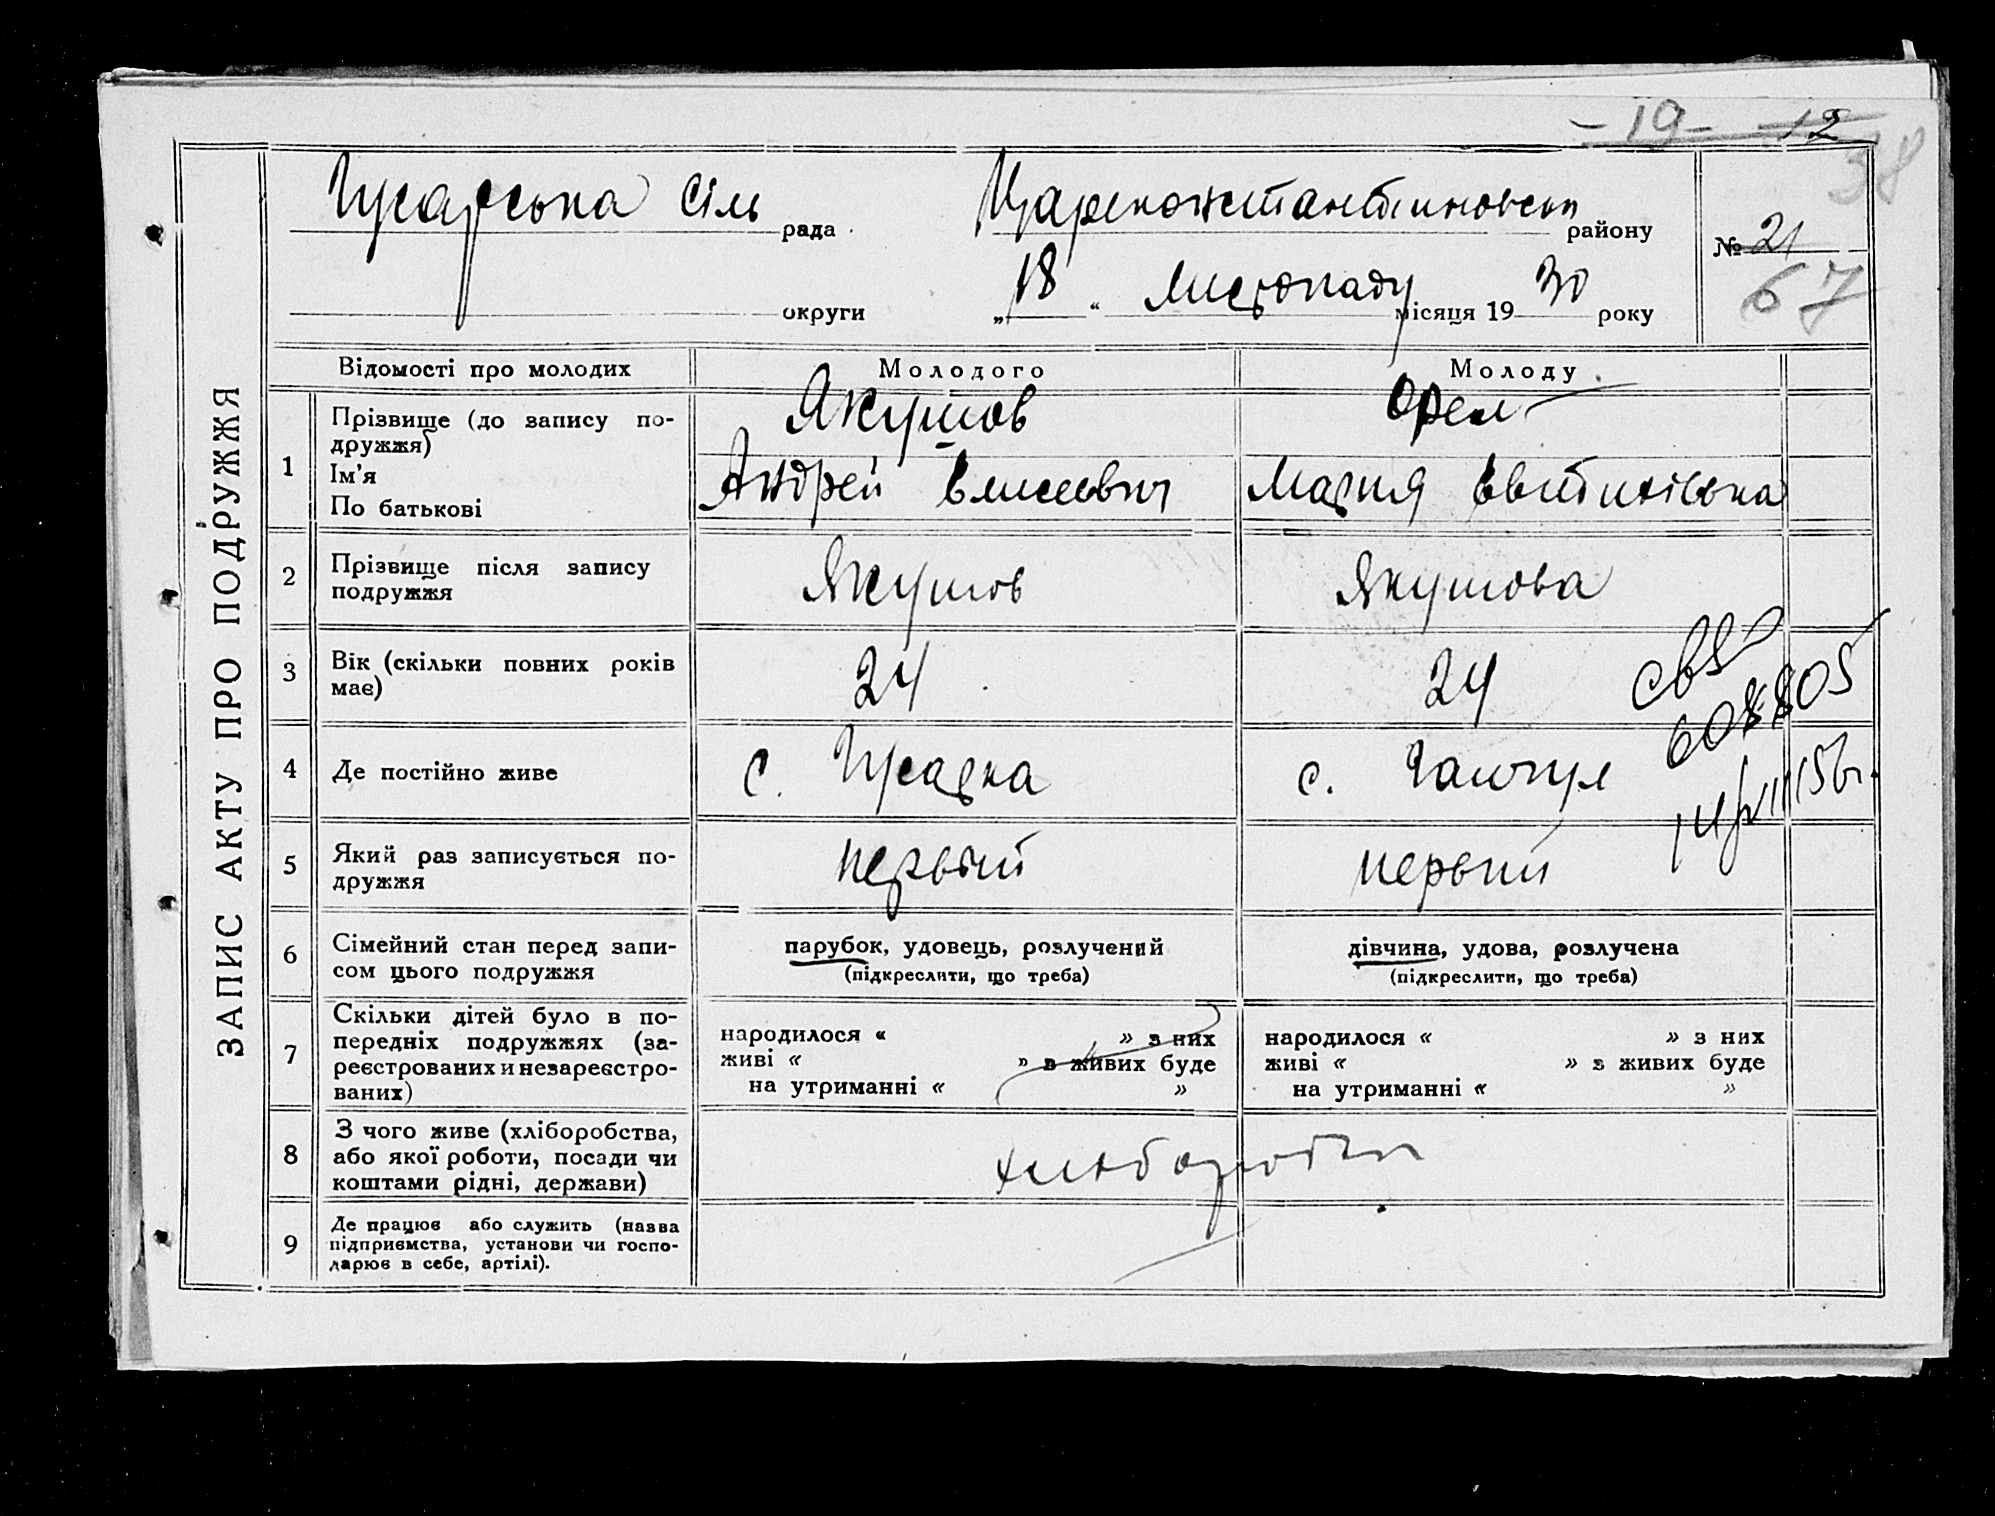 - 19 - 12
38
Гусарська сіль рада
Цареконстантиновськ району
№ 21
67
округи
„ 18 “ Листопаду місяця 19 30 року
ЗАПИС АКТУ ПРО ПОДРУЖЖЯ
Відомості про молодих
Молодого
Молоду
1
Прізвище (до запису по-
дружжя)
Ім’я
По батькові
Якушов
Андрей Елисеевич
Орел
Мария
2
Прізвище після запису
подружжя
Якушов
Якушова
3
Вік (скільки повних років
має)
24
24
4
Де постійно живе
с. Гусарка
с.
5
Який раз записується по-
дружжя
первый
первий
6
Сімейний стан перед запи-
сом цього подружжя
парубок, удовець, розлучений
(підкреслити, що треба)
дівчина, удова, розлучена
(підкреслити, що треба)
7
Скільки дітей було в по-
передніх подружжях (за-
реєстрованих и незареєстро-
ваних)
народилося « » з них
живі « » з живих буде
на утриманні « »
народилося « » з них
живі « » з живих буде
на утриманні « »
8
З чого живе (хліборобства,
або якої роботи, посади чи
коштами рідні, держави)
9
Де працює або служить (назва
підприємства, установи чи госпо-
дарює в себе, артілі).